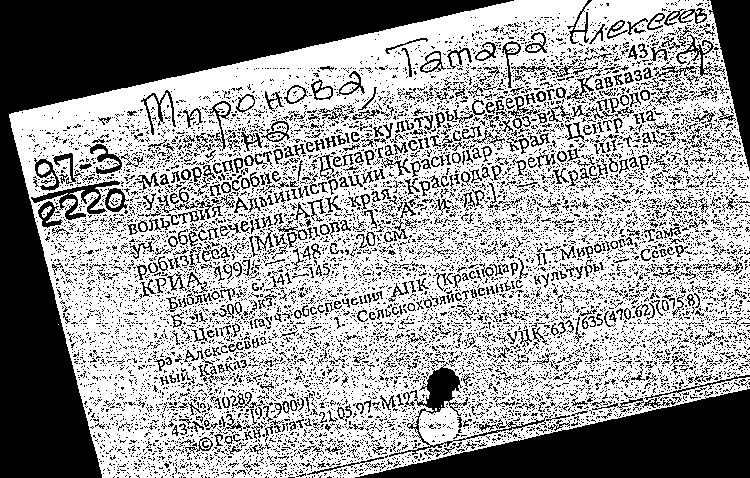 Миронова, Тамара Алексеев
на
43
и др
97-3
2220
Малораспространенные культуры Северного Кавказа:
Учеб. пособие / Департамент сел. хоз-ва и продо-
вольствия Администрации Краснодар. края, Центр на-
уч. обеспечения АПК края, Краснодар. регион. ин-т аг-
робизнеса; [Миронова Т. А. и др.]. — Краснодар
КРИА, 1997. — 148 с., 20 см.
Библиогр.: с. 141—145.
Б. ц. 500 экз.
I. Центр науч. обеспечения АПК (Краснодар). II. Миронова, Тама-
ра Алексеевна. — — 1. Сельскохозяйственные культуры — Север-
ный Кавказ.
УДК 633/635(470.62)(075.8)
№ 10289
43 № 43 [97-9009]
© Рос. кн. палата 21.05.97 М197